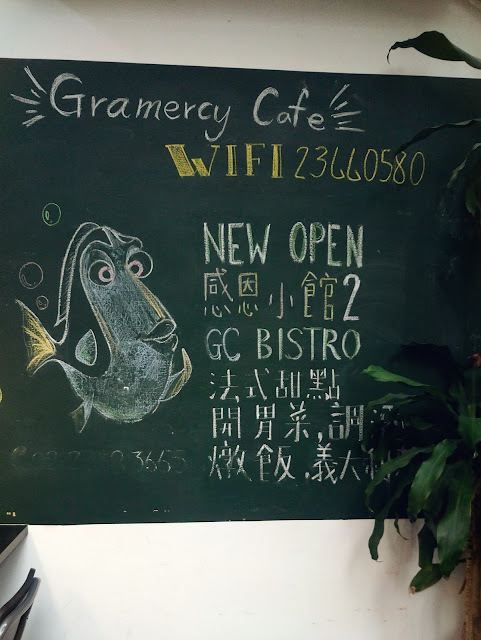 Gramercy Cafe
WIFI 23660580
NEW OPEN
感恩小館2
GC BISTRO
法式甜點
開胃菜,調
燉飯.義大利
3665